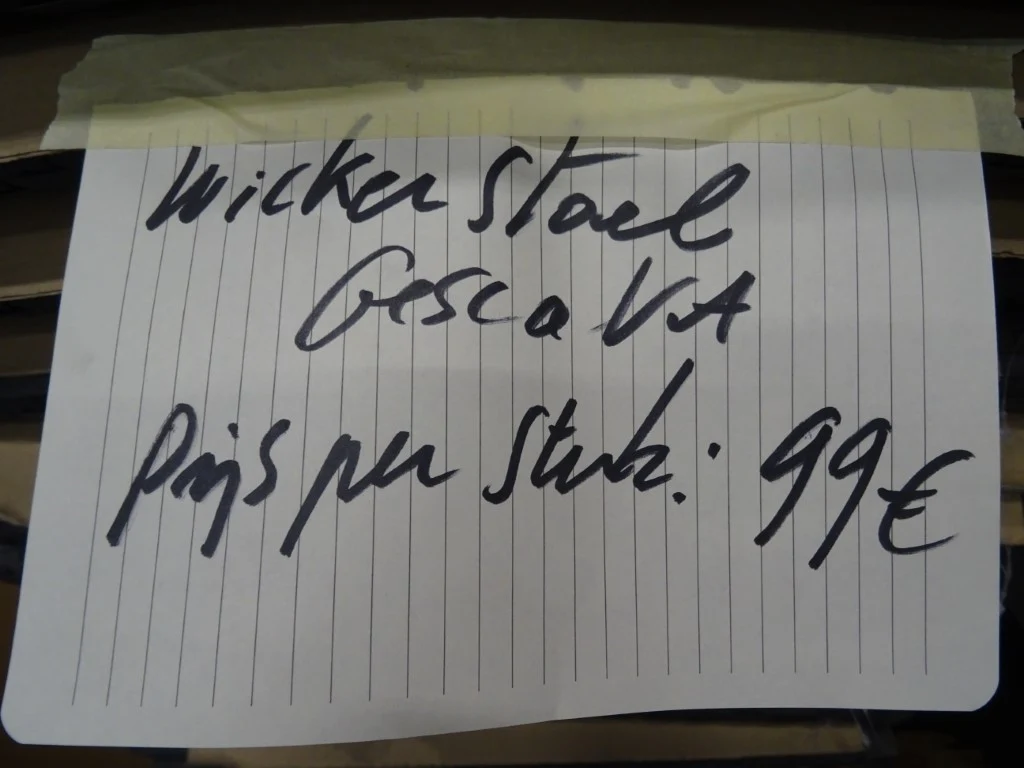 Wicker Stoel
Gesca VA
Prijs per Stuk: 99€